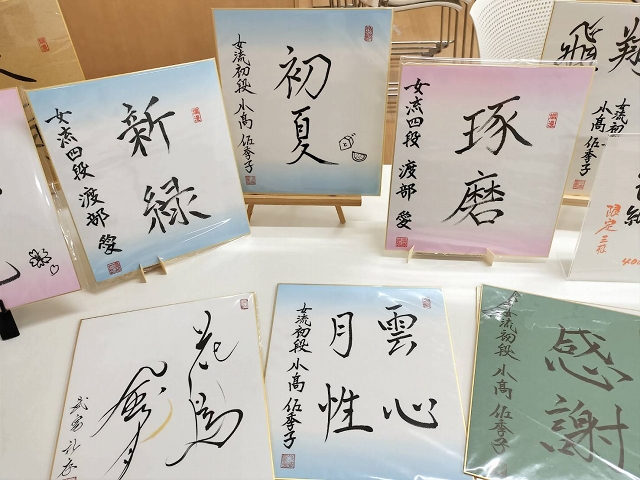 新緑
女流四段 渡部 愛
初夏
女流初段 小高 佐季子
琢磨
女流四段 渡部 愛
飛翔
女流初段 小高 佐季子
限定三
花鳥
風月
雲心
月性
女流初段 小高 佐季子
感謝
女流初段 小高 佐季子